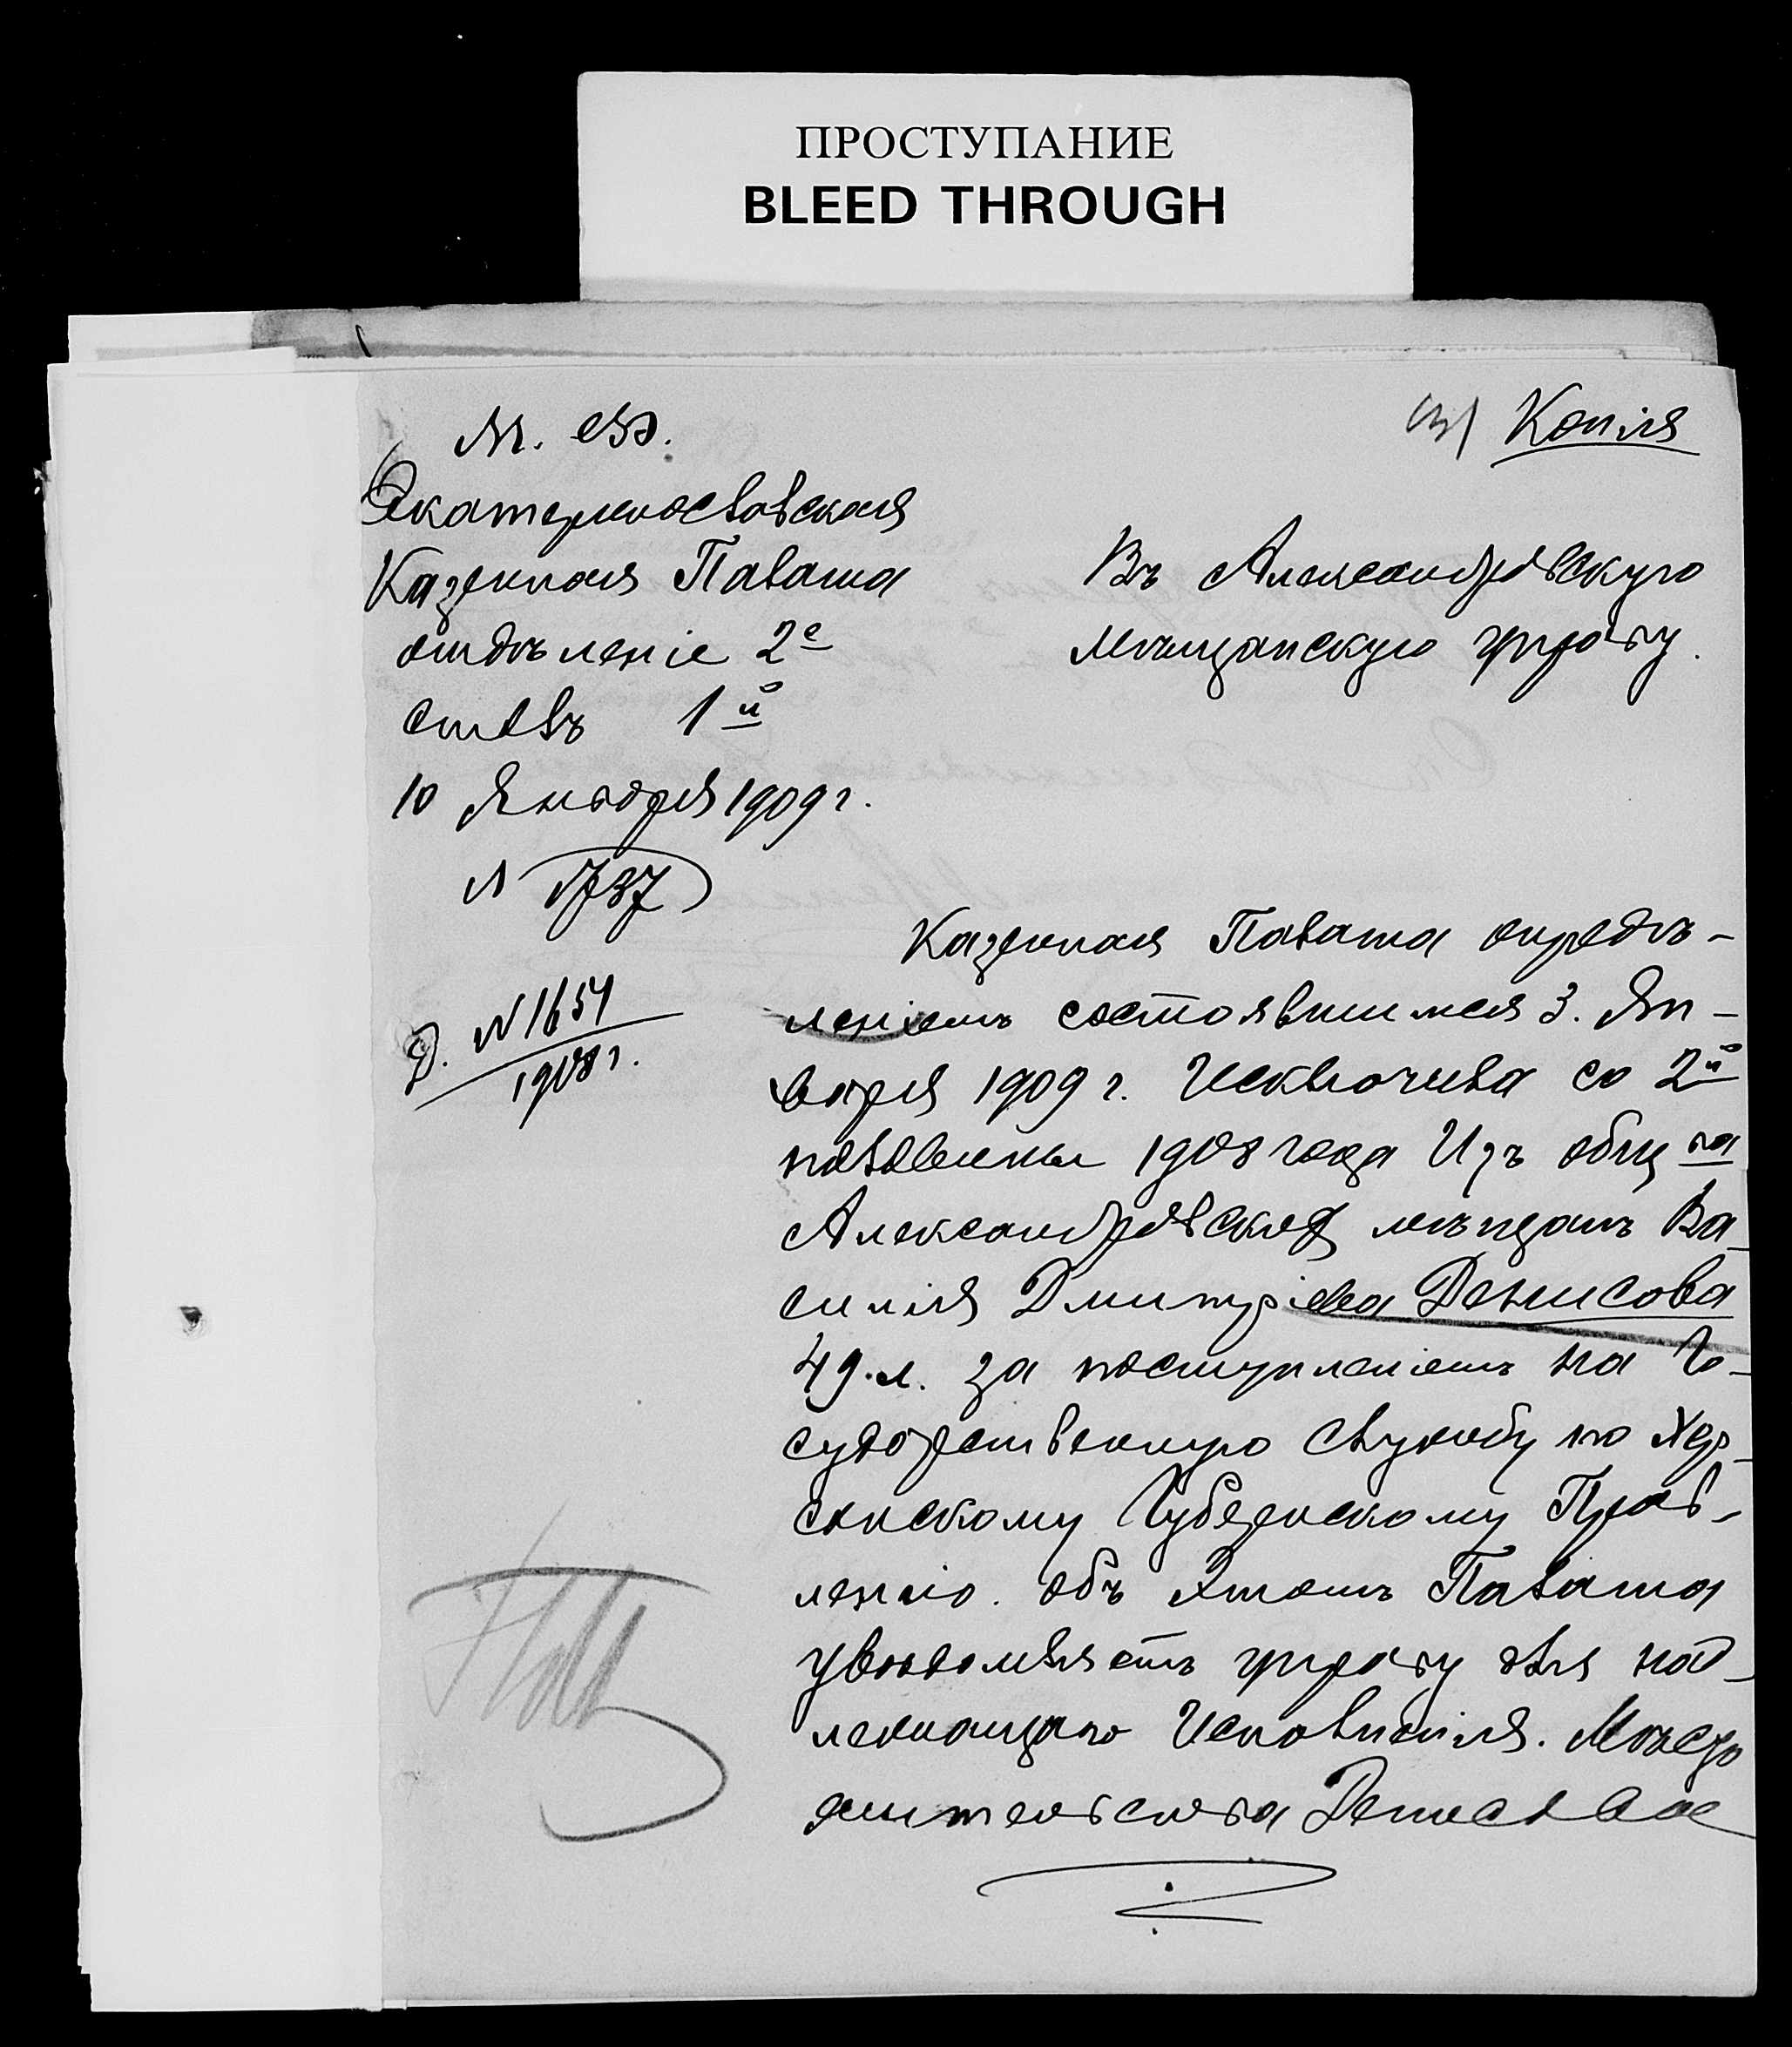 ПРОСТУПАНИЕ
BLEED THROUGH
Копія
М. Ф.
Екатеринославская
Казенная Палата
отдѣленіе 2е
столъ 1й
10 Января 1909 г.
N 1737
Д. N 1654
1908 г.
Въ Александровскую
мѣщанскую управу.
Казенная Палата опредѣ-
леніемъ состоявшимся 3. Ян-
варя 1909 г. Исключила со 2й
половины 1908 года Изъ общ ва
Александровскаго мѣщан Ва-
силія Дмитріева Денисова
49.л. за поступленіемъ на Го-
сударственную службу по Хер-
сонскому Губернскому Прав-
ленію. объ Этомъ Палата
увѣдомляетъ управу для над-
лежащаго Исполненія. Мѣсто
жительства Денисова